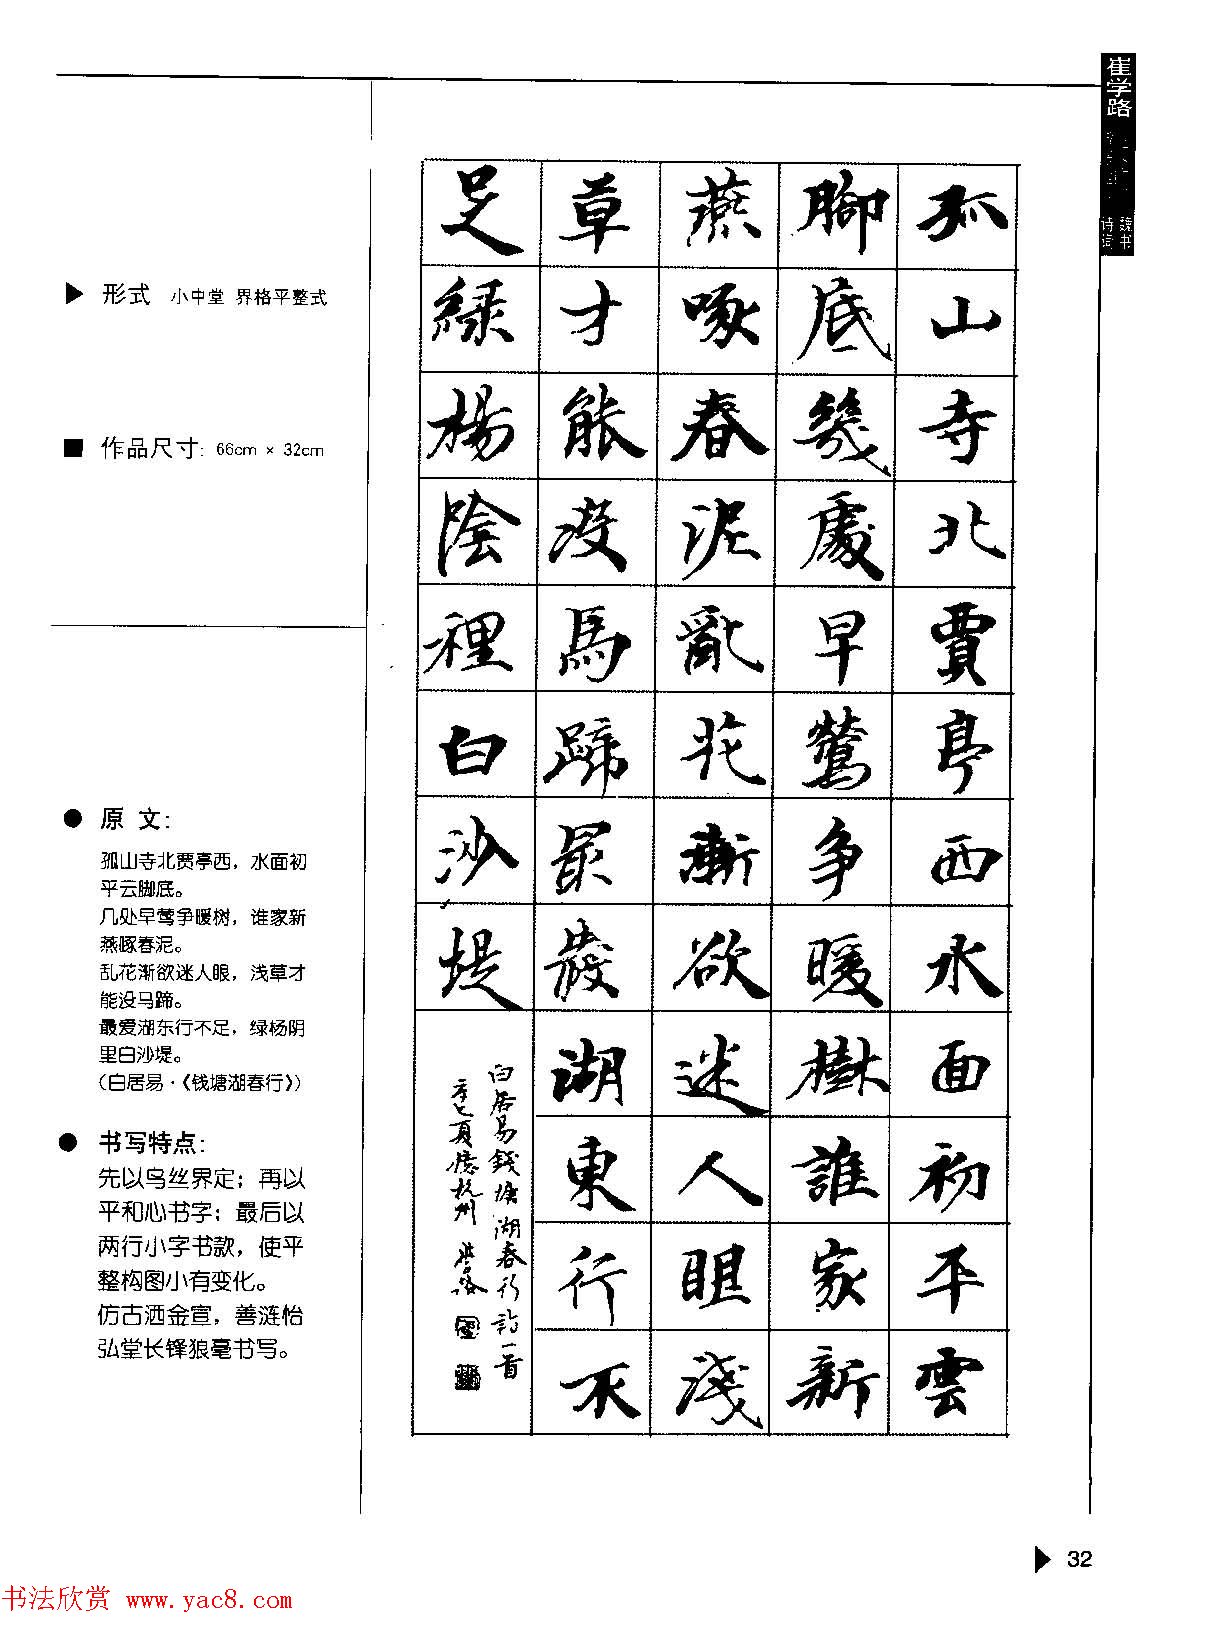 崔学路
魏书
诗词
孤山寺北賈亭西水面初平雲
腳底幾處早鶯争暖樹誰家新
燕啄春泥亂花漸欲迷人眼淺
草才能没馬蹄最愛湖東行不
足緑楊陰裡白沙堤
白居易錢塘湖春行詩一首
辛巳夏憶杭州 學路
形式 小中堂 界格平整式
作品尺寸: 66cm × 32cm
原 文:
孤山寺北贾亭西，水面初
平云脚底。
几处早莺争暖树，谁家新
燕啄春泥。
乱花渐欲迷人眼，浅草才
能没马蹄。
最爱湖东行不足，绿杨阴
里白沙堤。
(白居易·《钱塘湖春行》)
书写特点:
先以乌丝界定；再以
平和心书字；最后以
两行小字书款，使平
整构图小有变化。
仿古洒金宣，善涟怡
弘堂长锋狼毫书写。
32
书法欣赏 www.yac8.com